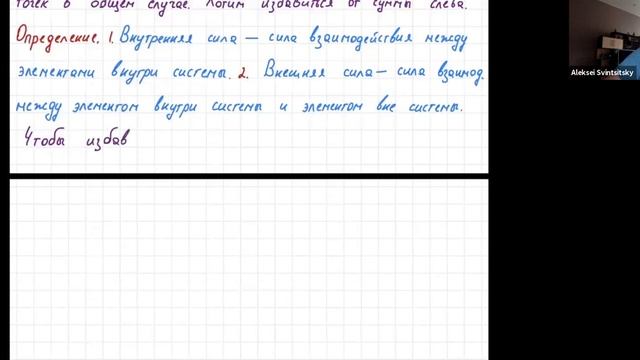 точек в общем случае. Хотим избавиться от суммы слева.
Определение. 1. Внутренняя сила — сила взаимодействия между
элементами внутри системы. 2. Внешняя сила — сила взаимод.
между элементом внутри системы и элементом вне системы.
Чтобы избав
Aleksei Svintsitsky